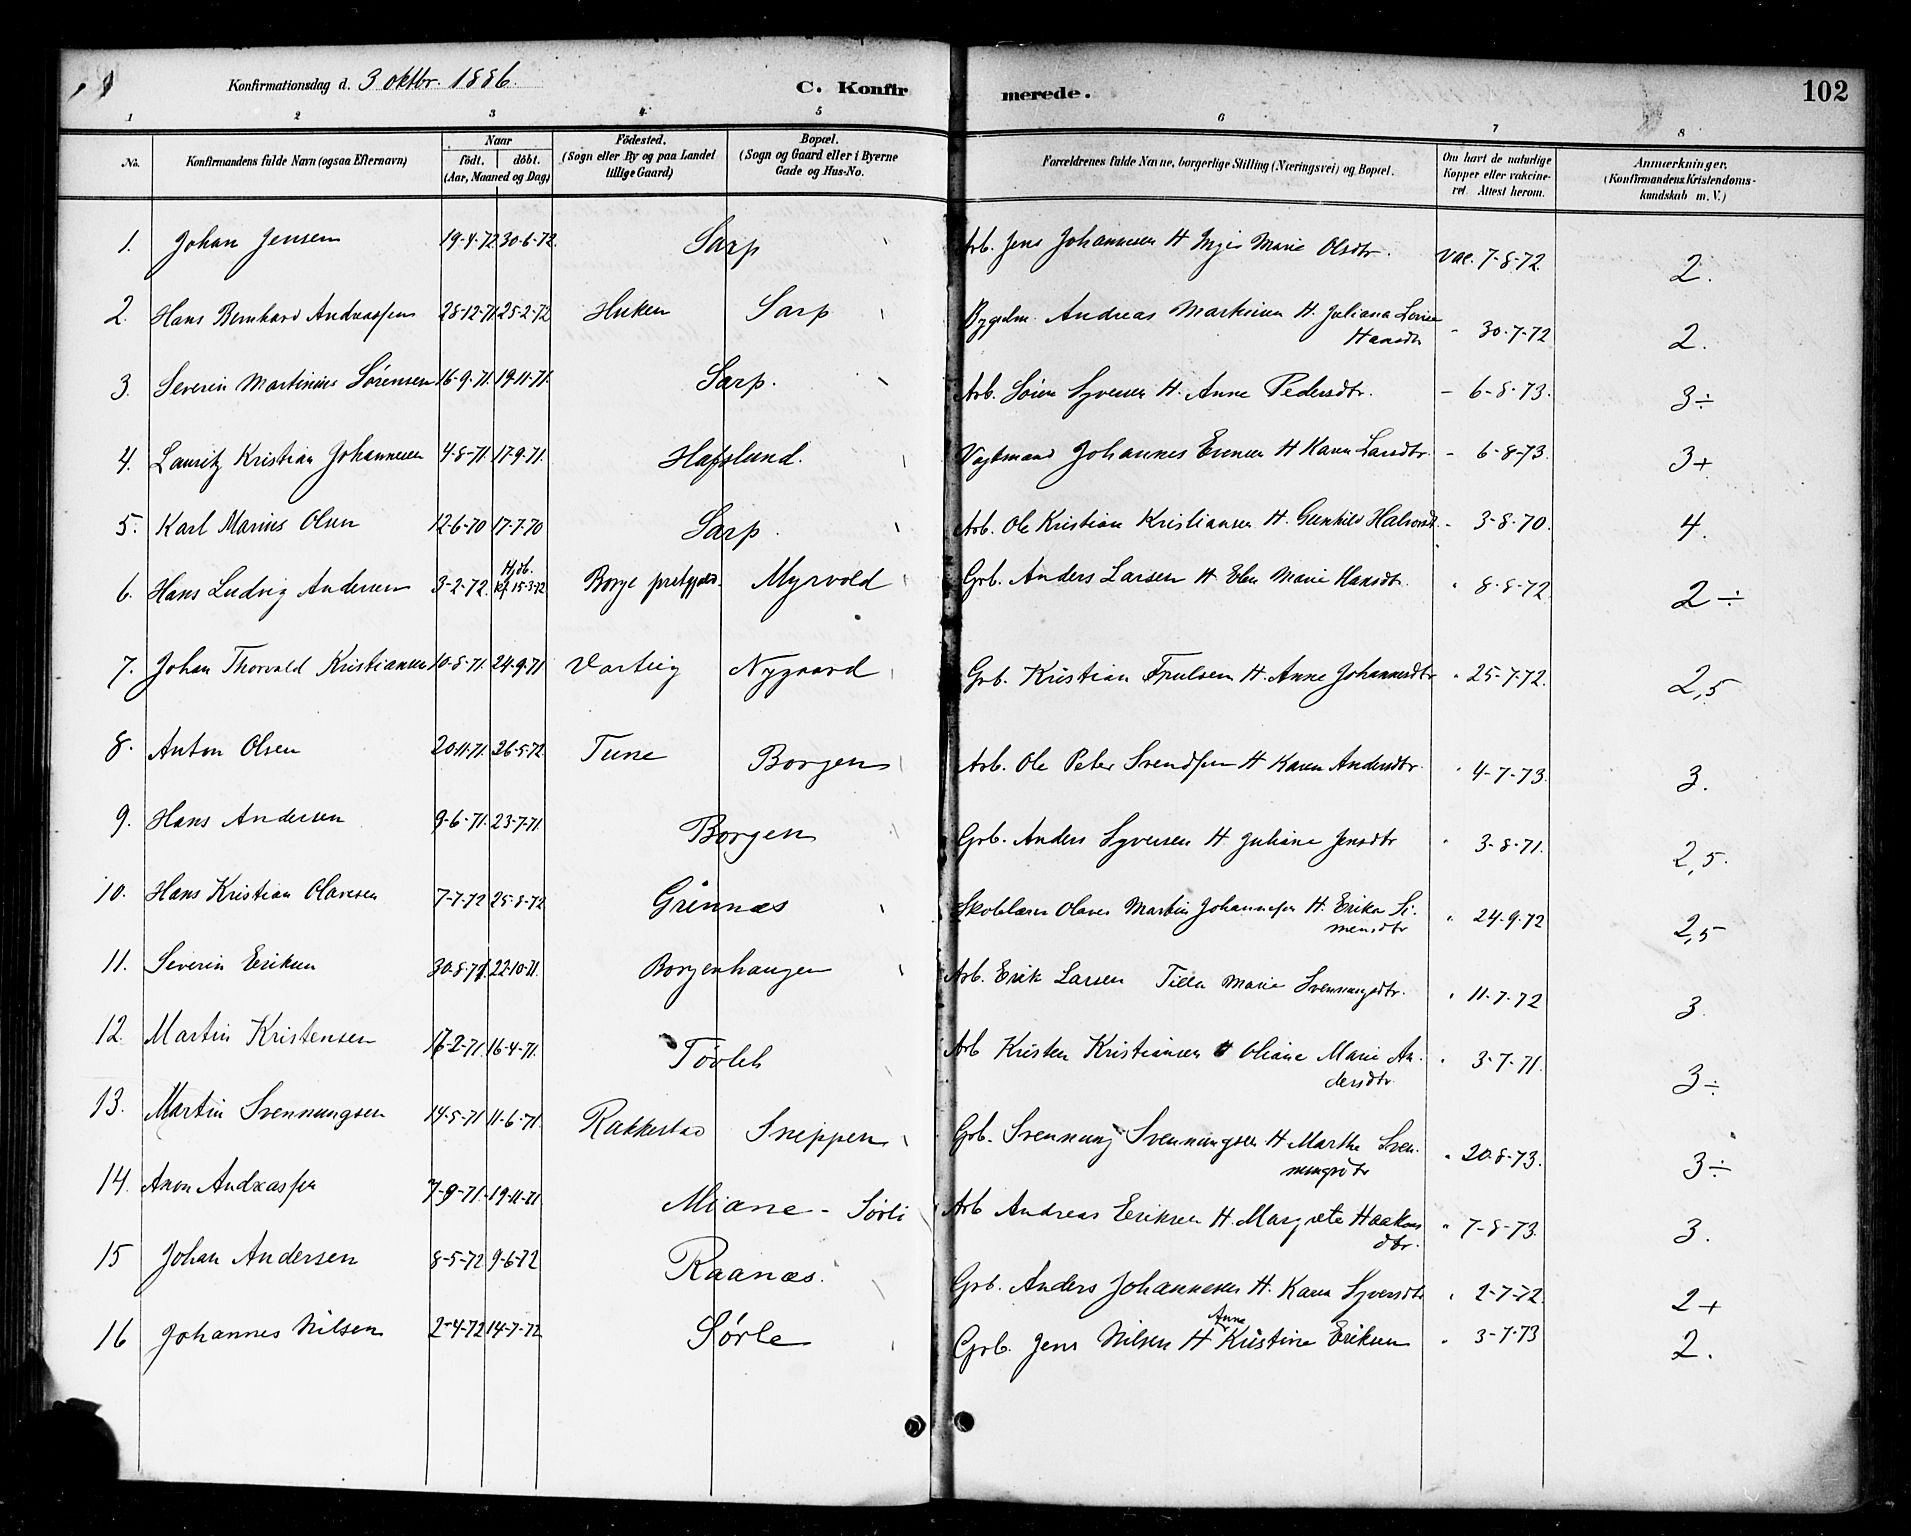 Konfirmationsdag d. 3 oktbr. 1886. C. Konfirmerede. 102
1 2 3 4 5 6 7 8
No. Konfirmandens fulde Navn (ogsaa Efternavn) Naar født. døbt. (Aar, Maaned og Dag) Fødested. (Sogn eller By og paa Landet tillige Gaard) Bopæl. (Sogn og Gaard eller i Byerne Gade og Hus-No. Forældrenes fulde Navne, borgerlige Stilling (Næringsvei) og Bopæl. Om havt de naturlige Kopper eller vakcineret. Attest herom. Anmærkninger. (Konfirmandens Kristendomskundskab m. V.)
1. Johan Jensen 19-4-72 30-6-72. Sarp Arb. Jens Johannesen H Ingis Marie Olsdtr. Vac. 7-8-72. 2.
2. Hans Bernhard Andreassen 28-12-71 25-2-72 Huken Sarp Bygselm. Andreas Martinsen H. Juliana Lovise
Hansdtr - 30-7-72 2.
3. Severin Martinius Sørensen 16-9-71. 19-11-71. Sarp. Arb. Søren Syversen H. Anne Pedersdtr. - 6-8-73. 3÷
4. Lauritz Kristian Johannesen 4-8-71. 17-9-71. Hafslund. Vagtmand Johannes Evensen H Karen Larsdtr. - 6-8-73. 3+
5. Karl Marius Olsen 12-6-70 17-7-70 Sarp. Arb. Ole Kristian Kristiansen H. Gunhild Halvorsd. - 3-8-70. 4.
6. Hans Ludvig Andersen 3-2-72. Hjdb. Kf. 15-3-72 Borge prstgjeld. Myrvold Grb. Anders Larsen H Elen Marie Hansdtr. " 8-8-72. 2÷
7. Johan Thorvald Kristiansen 10-8-71. 24-9-71 Varteig Nygaard Grb. Kristian Frulsen H. Anne Johannesdtr " 25-7-72. 2,5
8. Anton Olsen 20-11-71. 26-5-72. Tune Borgen Arb. Ole Peter Svendsen H Karen Andersdtr. " 4-7-73. 3.
9. Hans Andersen 9-6-71. 23-7-71. Borgen Grb. Anders Syversen H Juliane Jensdtr " 3-8-71. 2,5.
10. Hans Kristian Olavesen 7-7-72 25-8-72 Grinnæs Skolelærer Olaves Martin Johannessen H. Erika Simensdtr " 24-9-72 2,5
11. Severin Eriksen 30-8-71 22-10-71. Borgenhaugen Arb. Erik Larsen Tilla Marie Svenningsdtr. " 11-7-72 3.
12. Martin Kristensen 16-2-71. 16-4-71. Tøvleh Arb Kristen Kristiansen H Oliane Marie Andersdtr. " 3-7-71. 3÷
13. Martin Svennungsen 14-5-71 11-6-71. Rakkestad Sneppen Grb. Svennung Svennungsen H Marthe Svennungsdtr " 20-8-73. 3÷
14. Anon Andreassen 7-9-71. 19-11-71. Miane - Sørli Arb Andreas Eriksen H. Margrete Haakonsdtr. " 7-8-73. 3.
15 Johan Andersen 8-5-72 9-6-72 Raanæs. Grb. Anders Johannesen H. Karen Syversdtr " 2-7-72. 2+
16 Johannes Nilsen 2-4-72 14-7-72 Sørle Grb. Jens Nilsen H Anne Kristine Eriksen " 3-7-73 2.